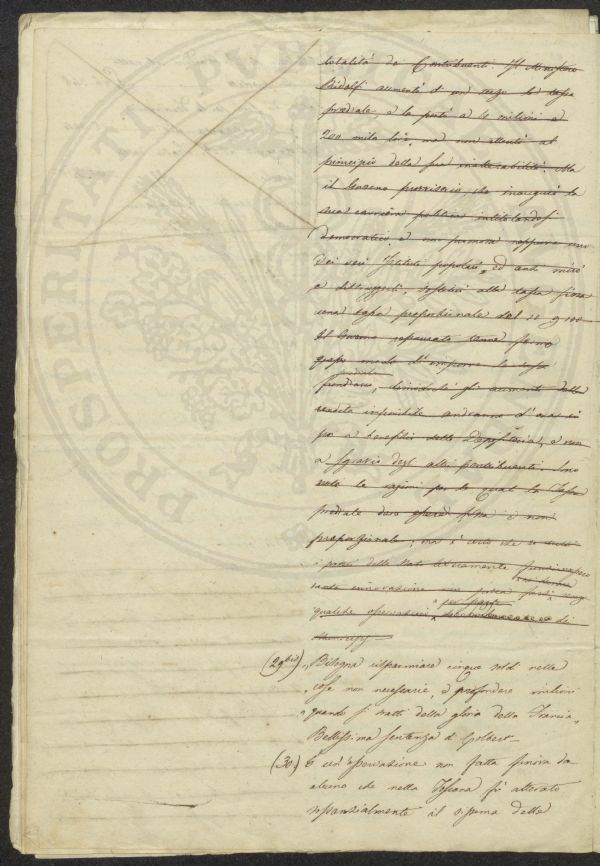 totalità de Contribuenti. Il Ministero
Ridolfi aumentò d'un terzo la tassa
prediale, e la portò a 4 milioni e
200 mila lire, ma non attentò al
principio della sua inalterabilità. Ma
il Governo provvisorio, che inaugurò la
sua carriera politica intitolandosi
democratico, e non promosse neppure uno
dei veri Istituti popolari, ed anzi mirò
a distruggerli, sostituì alla tassa fissa
una tassa proporzionale del 10 p 100
Il Governo restaurato tenne fermo
questo modo d'imporre la tassa
prediale
fondiaria, cosicché gli aumenti della
rendita imponibile andranno d'ora in
poi a benefizio della, e non
a sgravio degli altri contribuenti. Sono
note le ragioni per le quali la Tassa
prediale deve essere fissa e non
proporzionale, ma è certo che
i pratici dello Stato
tanta innovazione
qualche osservazione di
per
(29 bis) "Bisogna risparmiare cinque soldi nelle
"cose non necessarie, e profondere milioni
"quando si tratti della gloria della Francia,,
Bellissima sentenza di Colbert
(30.) È un'osservazione non fatta finora da
alcuno che nella Toscana fu alterato
sostanzialmente il sistema delle
PROSPERITATI PVBLICAE